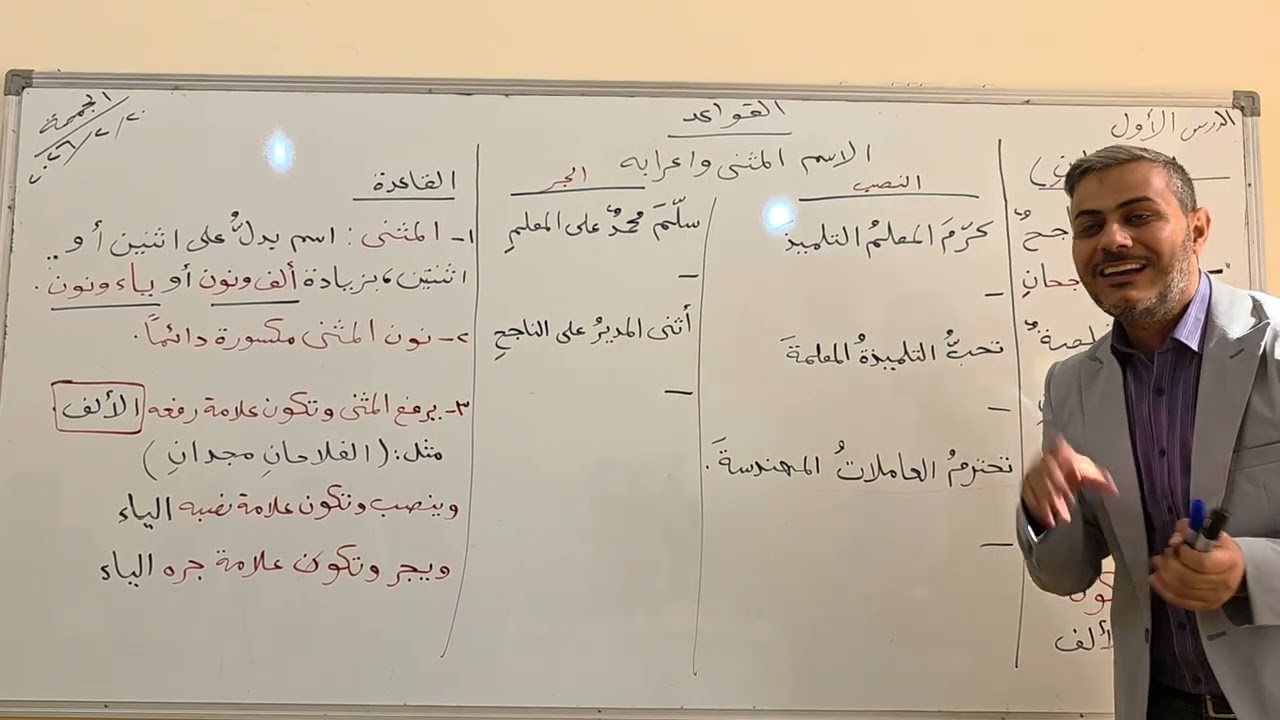 الدرس الأول
القواعد
الاسم المثنى واعرابه
الجمعة
٢٠٢٦/٢/٢٠
جحانِ
كون
ألف
النصب
كرّمَ المعلمُ التلميذَ
–
تحبُّ التلميذةُ المعلمةَ
–
تحترمُ العاملاتُ المهندسةَ.
–
الجر
سلّمَ محمدٌ على المعلمِ
–
أثنى المديرُ على الناجحِ
–
القاعدة
١- المثنى: اسم يدلُّ على اثنين أو ..
اثنتين، بزيادة ألف ونون أو ياء ونون.
٢- نون المثنى مكسورة دائماً.
٣- يرفع المثنى وتكون علامة رفعه الألف.
مثل: (الفلاحانِ مجدانِ)
وينصب وتكون علامة نصبه الياء
ويجر وتكون علامة جره الياء